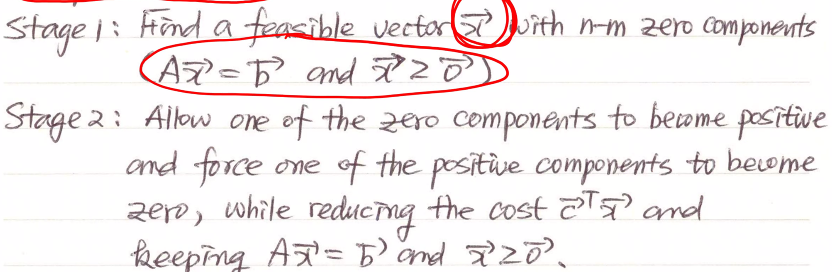 Stage 1: Find a feasible vector x⃗ with n-m zero components
(Ax⃗ = b⃗ and x⃗ ≥ 0⃗)
Stage 2: Allow one of the zero components to become positive
and force one of the positive components to become
zero, while reducing the cost c⃗ᵀx⃗ and
keeping Ax⃗ = b⃗ and x⃗ ≥ 0⃗.